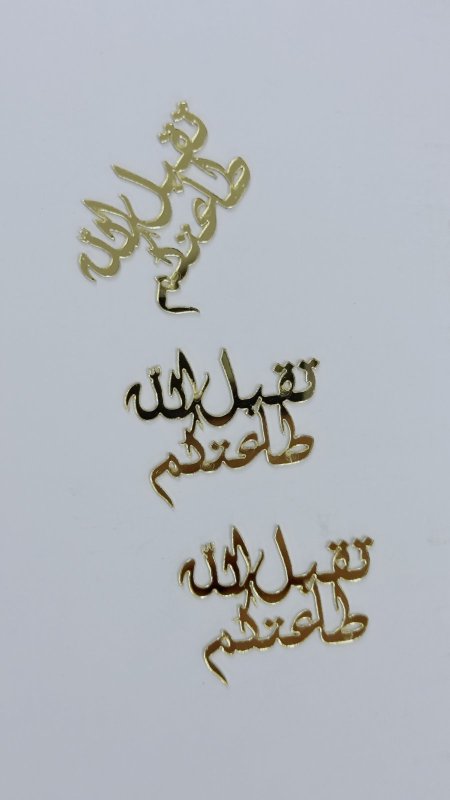 تقبل الله
طاعتكم
تقبل الله
طاعتكم
تقبل الله
طاعتكم